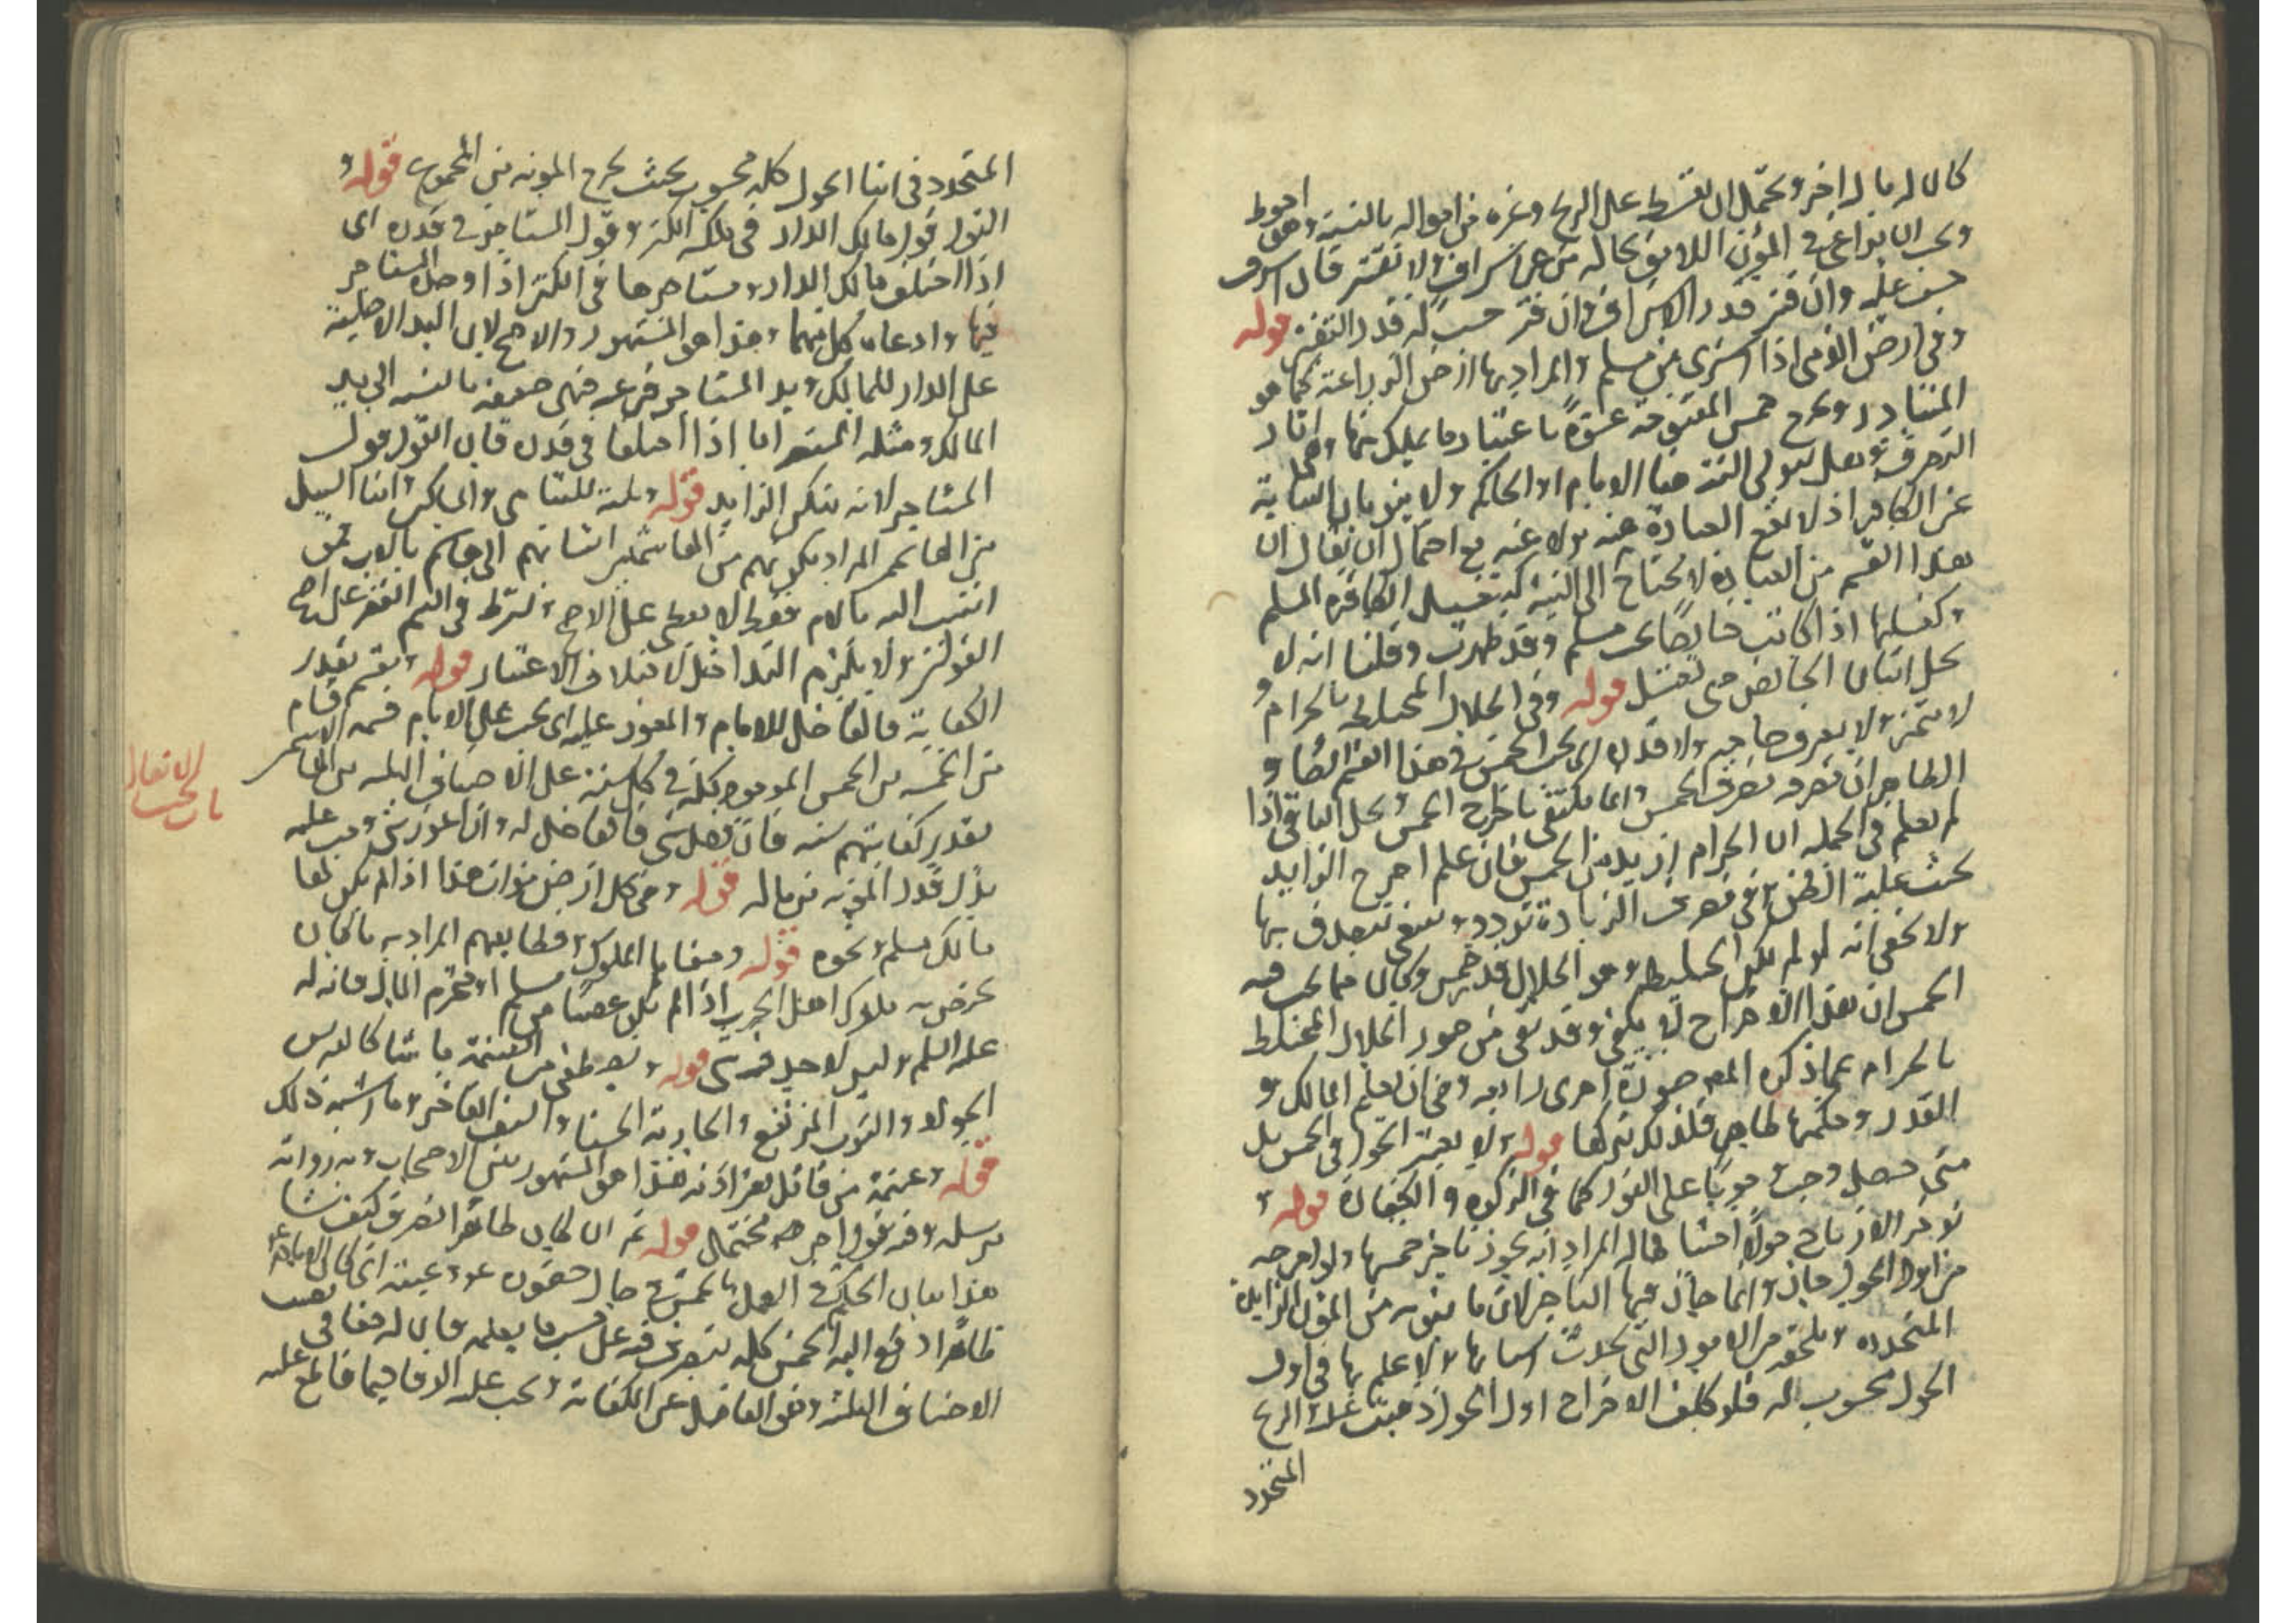 كان له مال اخر ويحتمل ان يقسط على الربح وغيره من امواله بالنسبة وهو احوط
ويجب ان يراعى في المؤن اللايق بحاله من غير اسراف ولا تقتير فان اسرف
حسب عليه وان قتر قدر الاسراف وان قتر حسب له قدر التقتير قوله
وفي ارض الذمي اذا اشترى من مسلم والمراد بها ارض الزراعة كما هو
المتبادر ويخرج خمس المفتوحة عنوة باعتبار ما يملك منها وهي اثار
التصرف وهل يتولى النية هنا الامام او الحاكم ولا ينويان النيابة
عن الكافر اذ لا تقع العبادة منه ولا عنه مع احتمال ان يقال ان
هذا القسم من العبادة لا يحتاج الى النية كتغسيل الكافر المسلم
وكغسلها اذا كانت حايضا تحت مسلم وقد طهرت وقلنا انه لا
يحل اتيان الحايض حتى تغتسل قوله وفي الحلال المختلط بالحرام و
لا يتميز ولا يعرف صاحبه ولا قدره اي يجب الخمس في هذا القسم ايضا و
الظاهر ان مصرفه مصرف الخمس وانما يكتفى باخراج الخمس ويحل الباقي اذا
لم يعلم في الجملة ان الحرام ازيد من الخمس فان علم اخرج الزايد
بحيث غلبة الظن وفي مصرف الزيادة تردد وينبغي تتصدق بها
ولا يخفى انه لو لم يكن الخليط وهو الحلال قد خمس وكان مما يجب فيه
الخمس ان هذا الاخراج لا يكفي وقد بقي من صور الحلال المختلط
بالحرام عما ذكره المص صورة اخرى رابعة وهي ان يعلم المالك و
القدر وحكمها ظاهر فلذلك تركها قوله ولا يعتبر الحول في الخمس بل
متى حصل وجب وجوبا على الفور كما في الزكوة والكفارة قوله و
توخر الارباح حولا احتياطا له المراد انه يجوز تاخير خمسها ولو اخرجه
من اول الحول جاز وانما جاز فيها التاخير لان ما ينوبه من المؤن الزايدة
المتجددة ويلحقه من الامور التي تحدث اسبابها ولا علم بها في اول
الحول محسوب له فلو كلف الاخراج اول الحول ذهبت عليه الربح
المتجدد
المتجدد في اثنا الحول كله محسوب بحيث يخرج المونه من المجموع قوله و
القول قول مالك الدار في ملكه الكنز وقول المستاجر في قدره اي
اذا اختلف مالك الدار ومستاجرها في الكنز اذا وجده المستاجر
فيها وادعاه كل منهما وهذا هو المشهور والاصح لان اليد الاصلية
على الدار للمالك ويد المستاجر فرعيه فهي ضعيفه بالنسبه الى يد
المالك ومثله المستعير اما اذا اختلفا في قدره فان القول قول
المستاجر لانه ينكر الزايد قوله وثلثة لليتامى والمساكين وابنا السبيل
من الهاشميين المراد بكونهم من الهاشميين انتسابهم الى هاشم بالاب فمن
انتسب اليه بالام فقط لا يعطى على الاصح ويشترط في اليتيم الفقر على اصح
القولين ولا يلزم التداخل لاختلاف الاعتبار قوله ويقسم بقدر
الكفاية فالفاضل للامام والمعوز عليه اي يجب على الامام قسمة الاسهم
من الخمس الموجود كله في كل سنة على الاصناف الثلثه من الهاشميين
بقدر كفايتهم سنه فان فضل شي فالفاضل له وان اعوز شي وجب عليه
بذل قدر المونه من ماله قوله وهي كل ارض موات هذا اذا لم يكن لها
مالك مسلم ونحوه قوله وصفايا الملوك وقطايعهم المراد به ما كان
يختص به ملوك اهل الحرب اذا لم يكن غصبا من مسلم او محترم المال فانه له
عليه السلم وليس لاحد فيه شي قوله ويصطفي من الغنيمة ما شا كالفرس
الجواد والثوب المرتفع والجارية الحسنا والسيف الفاخر وما اشبه ذلك
قوله وغنيمة من قاتل بغير اذنه هذا هو المشهور بين الاصحاب وبه رواية
مرسله وفيه قول اخر محتمل قوله ثم ان كان ظاهرا تصرف كيف شا
هذا بيان الحكم في العمل بالخمس في حال حضوره وغيبته اي كان الامام
ظاهرا دفع اليه الخمس كله يتصرف فيه على حسب ما يعلمه فان له حقا في
الاصناف الثلثه وهو الفاضل عن الكفاية ويجب عليه الاتمام
الانفال